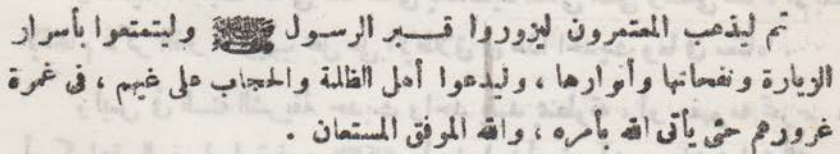 ثم ليذهب المعتمرون ليزوروا قــبر الرســول ﷺ وليتمتعوا بأسرار
الزيارة ونفحاتها وأنوارها ، وليدعوا أهل الظلمة والحجاب على غيهم ، فى غمرة
غرورهم حتى يأتى الله بأمره ، والله الموفق المستعان .